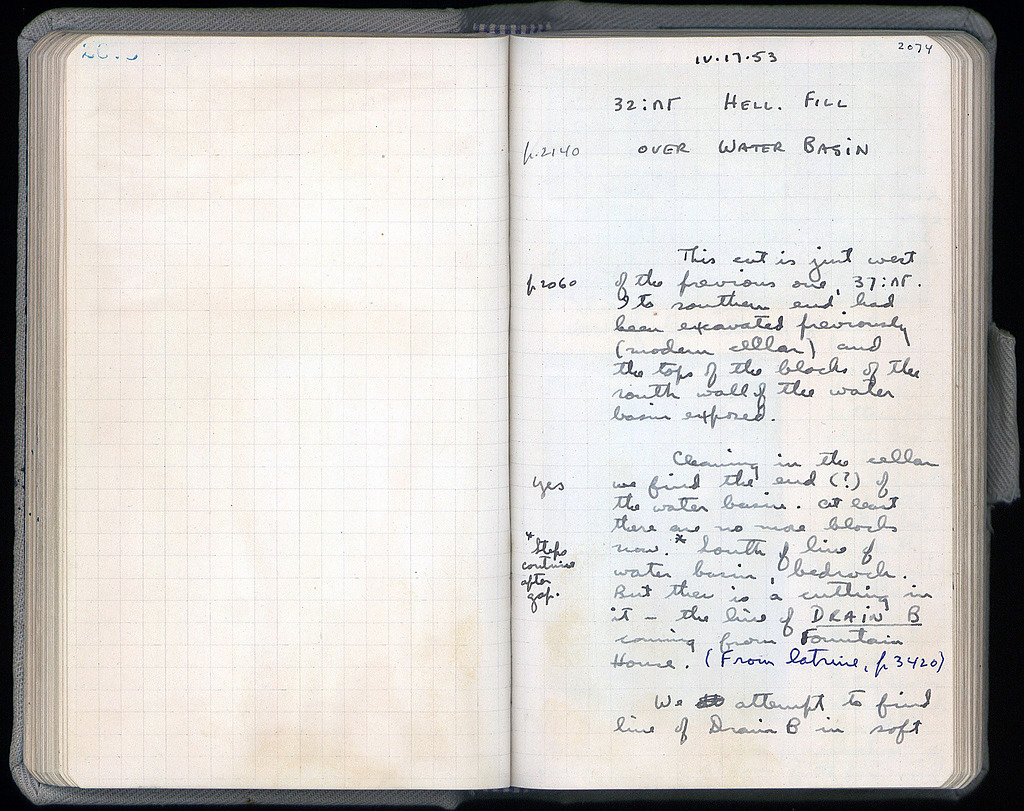 2074
IV.17.53
32:ΠΓ HELL. FILL
p.2140 OVER WATER BASIN
This cut is just west
p.2060 of the previous one, 37:ΠΓ.
Its southern end had
been excavated previously
(modern cellar) and
the tops of the blocks of the
south wall of the water
basin exposed.
Cleaning in the cellar
yes we find the end (?) of
the water basin. At least
there are no more blocks
now.* South of line of
water basin, bedrock.
But there is a cutting in
it – the line of DRAIN B
coming from Fountain
House. (From latrine, p.3420)
* Steps
continue
after
gap.
We attempt to find
line of Drain B in soft